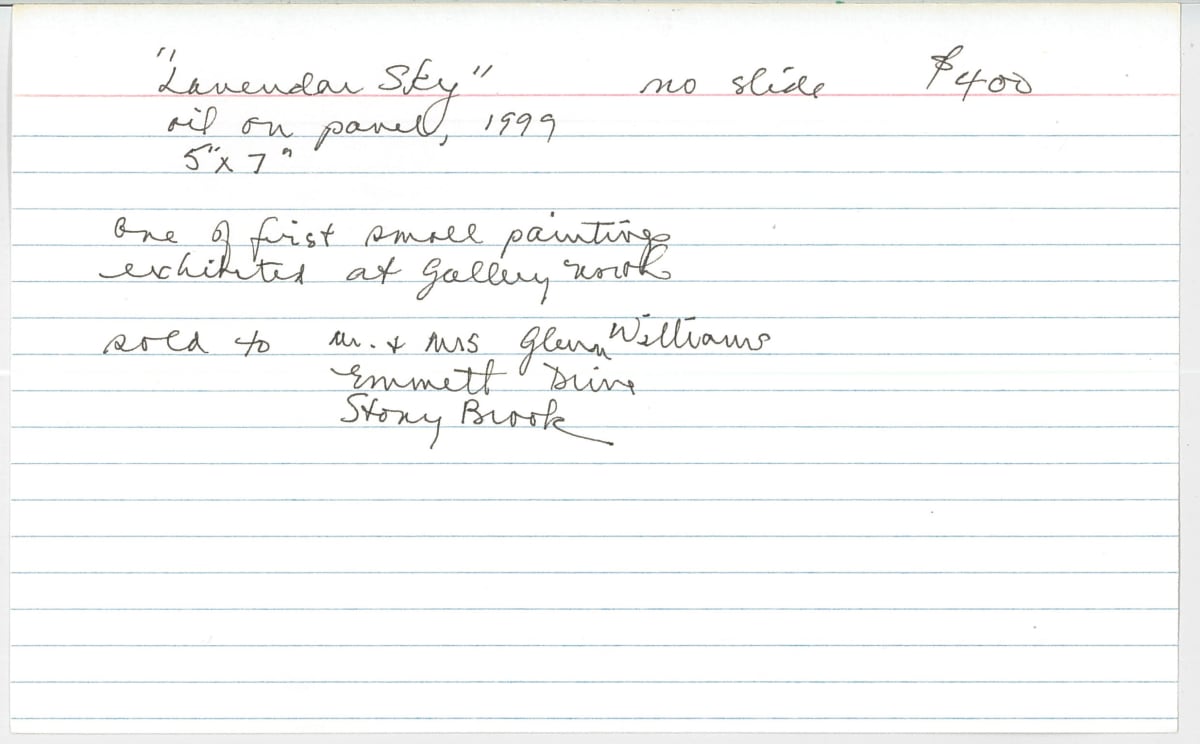 "Lavendar Sky" no slide $400
oil on panel, 1999
5"x 7"
One of first small paintings
exhibited at Gallery North
sold to Mr. & Mrs Glenn Williams
Emmett Drive
Stony Brook